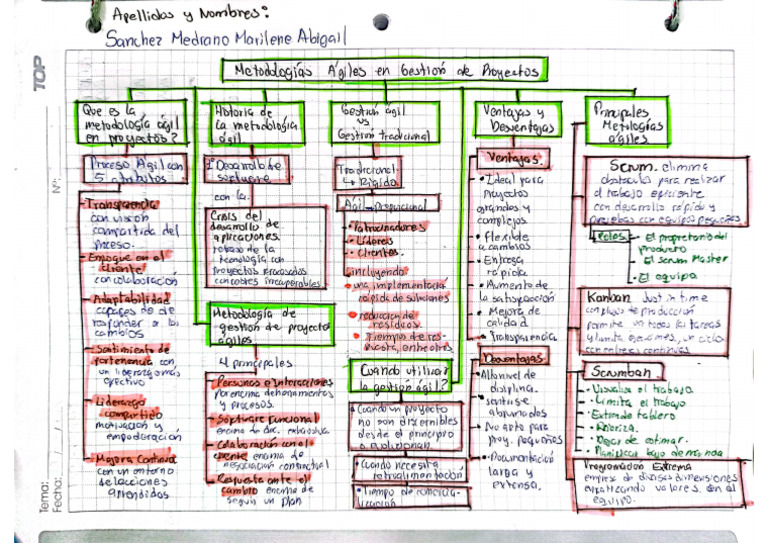 Apellidos y Nombres:
Sanchez Medrano Marilene Abigail
TOP
Nº:
Tema:
Fecha:
Metodologías Ágiles en Gestión de Proyectos
Que es la
metodología ágil
en proyectos?
Proceso Agil con
5 atributos
Transparencia
con visión
compartida del
proceso.
Enfoque en el
cliente
con colaboración
Adaptabilidad
capaces de de
responder a los
cambios
Sentimiento de
pertenencia con
un liderazgo mas
efectivo
Liderazgo
compartido
motivación y
empoderación
Mejora Continua
con un entorno
de lecciones
aprendidas
Historia de
la metodología
ágil
1° Desarrollo de
software
con la
Crisis del
desarrollo de
aplicaciones.
de la
tecnología con
proyectos
con costes
Metodología de
gestión de proyecto
ágiles
4 principales
Personas e Interacciones
por encima de
y procesos.
Software Funcional
encima de doc.
Colaboración con el
cliente encima de
negociación contractual
Respuesta ante el
cambio encima de
seguir un plan
Gestión ágil
vs
Gestión tradicional
Tradicional
↳ Rígido
Agil
• Patrocinadores
• Líderes
• Clientes.
incluyendo
• una implementación
rápida de soluciones
• reducción de
residuos
• Tiempo de res-
puesta, entre otros
Cuando utilizar
la gestión ágil?
Cuando un proyecto
no son discernibles
desde el principio
o evolucionan.
Cuando necesita
retroalimentación
Tiempo de comercia-
lización
Ventajas y
Desventajas
Ventajas.
• Ideal para
proyectos
grandes y
complejos.
• Flexible
a cambios
• Entrega
rápida
• Aumento de
la satisfacción
• Mejora de
calidad
• Transparencia
Desventajas
• Alto nivel de
disiplina.
• sentirse
abrumados
• No apto para
proy. pequeños
• Documentación
larga y
extensa.
Principales
Metologías
agiles.
Scrum. elimina
obstáculos para realizar
el trabajo eficiente
con desarrollo rápido y
pruebas con equipos pequeños.
Roles
- El propietario del
producto
- El Scrum Master
- El equipa
Kanban Just in time
de producción
permite todas las tareas
y limita ejecuciones, un ciclo
con entregas continuas
Scrumban
- Visualiza el trabajo
- Limita el trabajo
- Extiende tablero
- Prioriza.
- Dejar de estimar.
- Planificar bajo demanda
Programación Extrema
empresa de diversas dimensiones
enfatizando valores, con el
equipo.